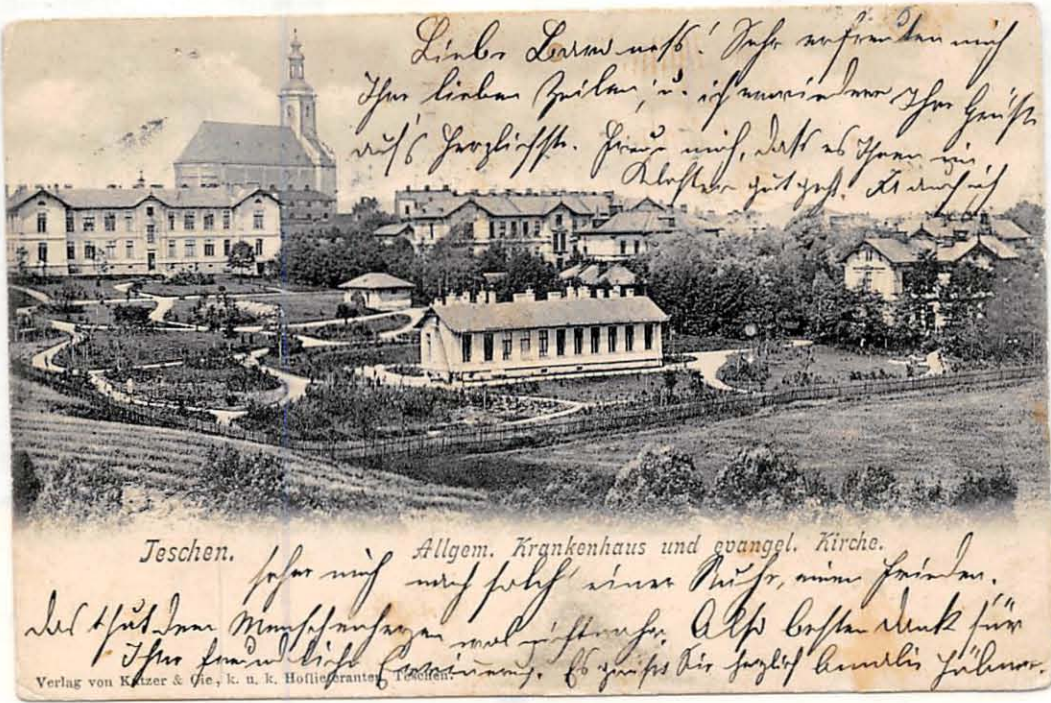 Liebe Baroness! Sehr erfreuten mich
Ihre lieben Zeilen, u. ich erwiedere Ihre Grüße
auf's herzlichste. Freue mich, daß es Ihnen im
Kloster gut geht. Ja auch ich
Teschen. Allgem. Krankenhaus und evangel. Kirche.
sehne mich nach solch einer Ruhe, einem Frieden.
das thut dem Menschenherzen wol
Also besten Dank für
Ihre freundliche Erinnerung. Es grüßt Sie herzlich Amalie
Verlag von Kutzer & Cie., k. u. k. Hoflieferanten, Teschen.